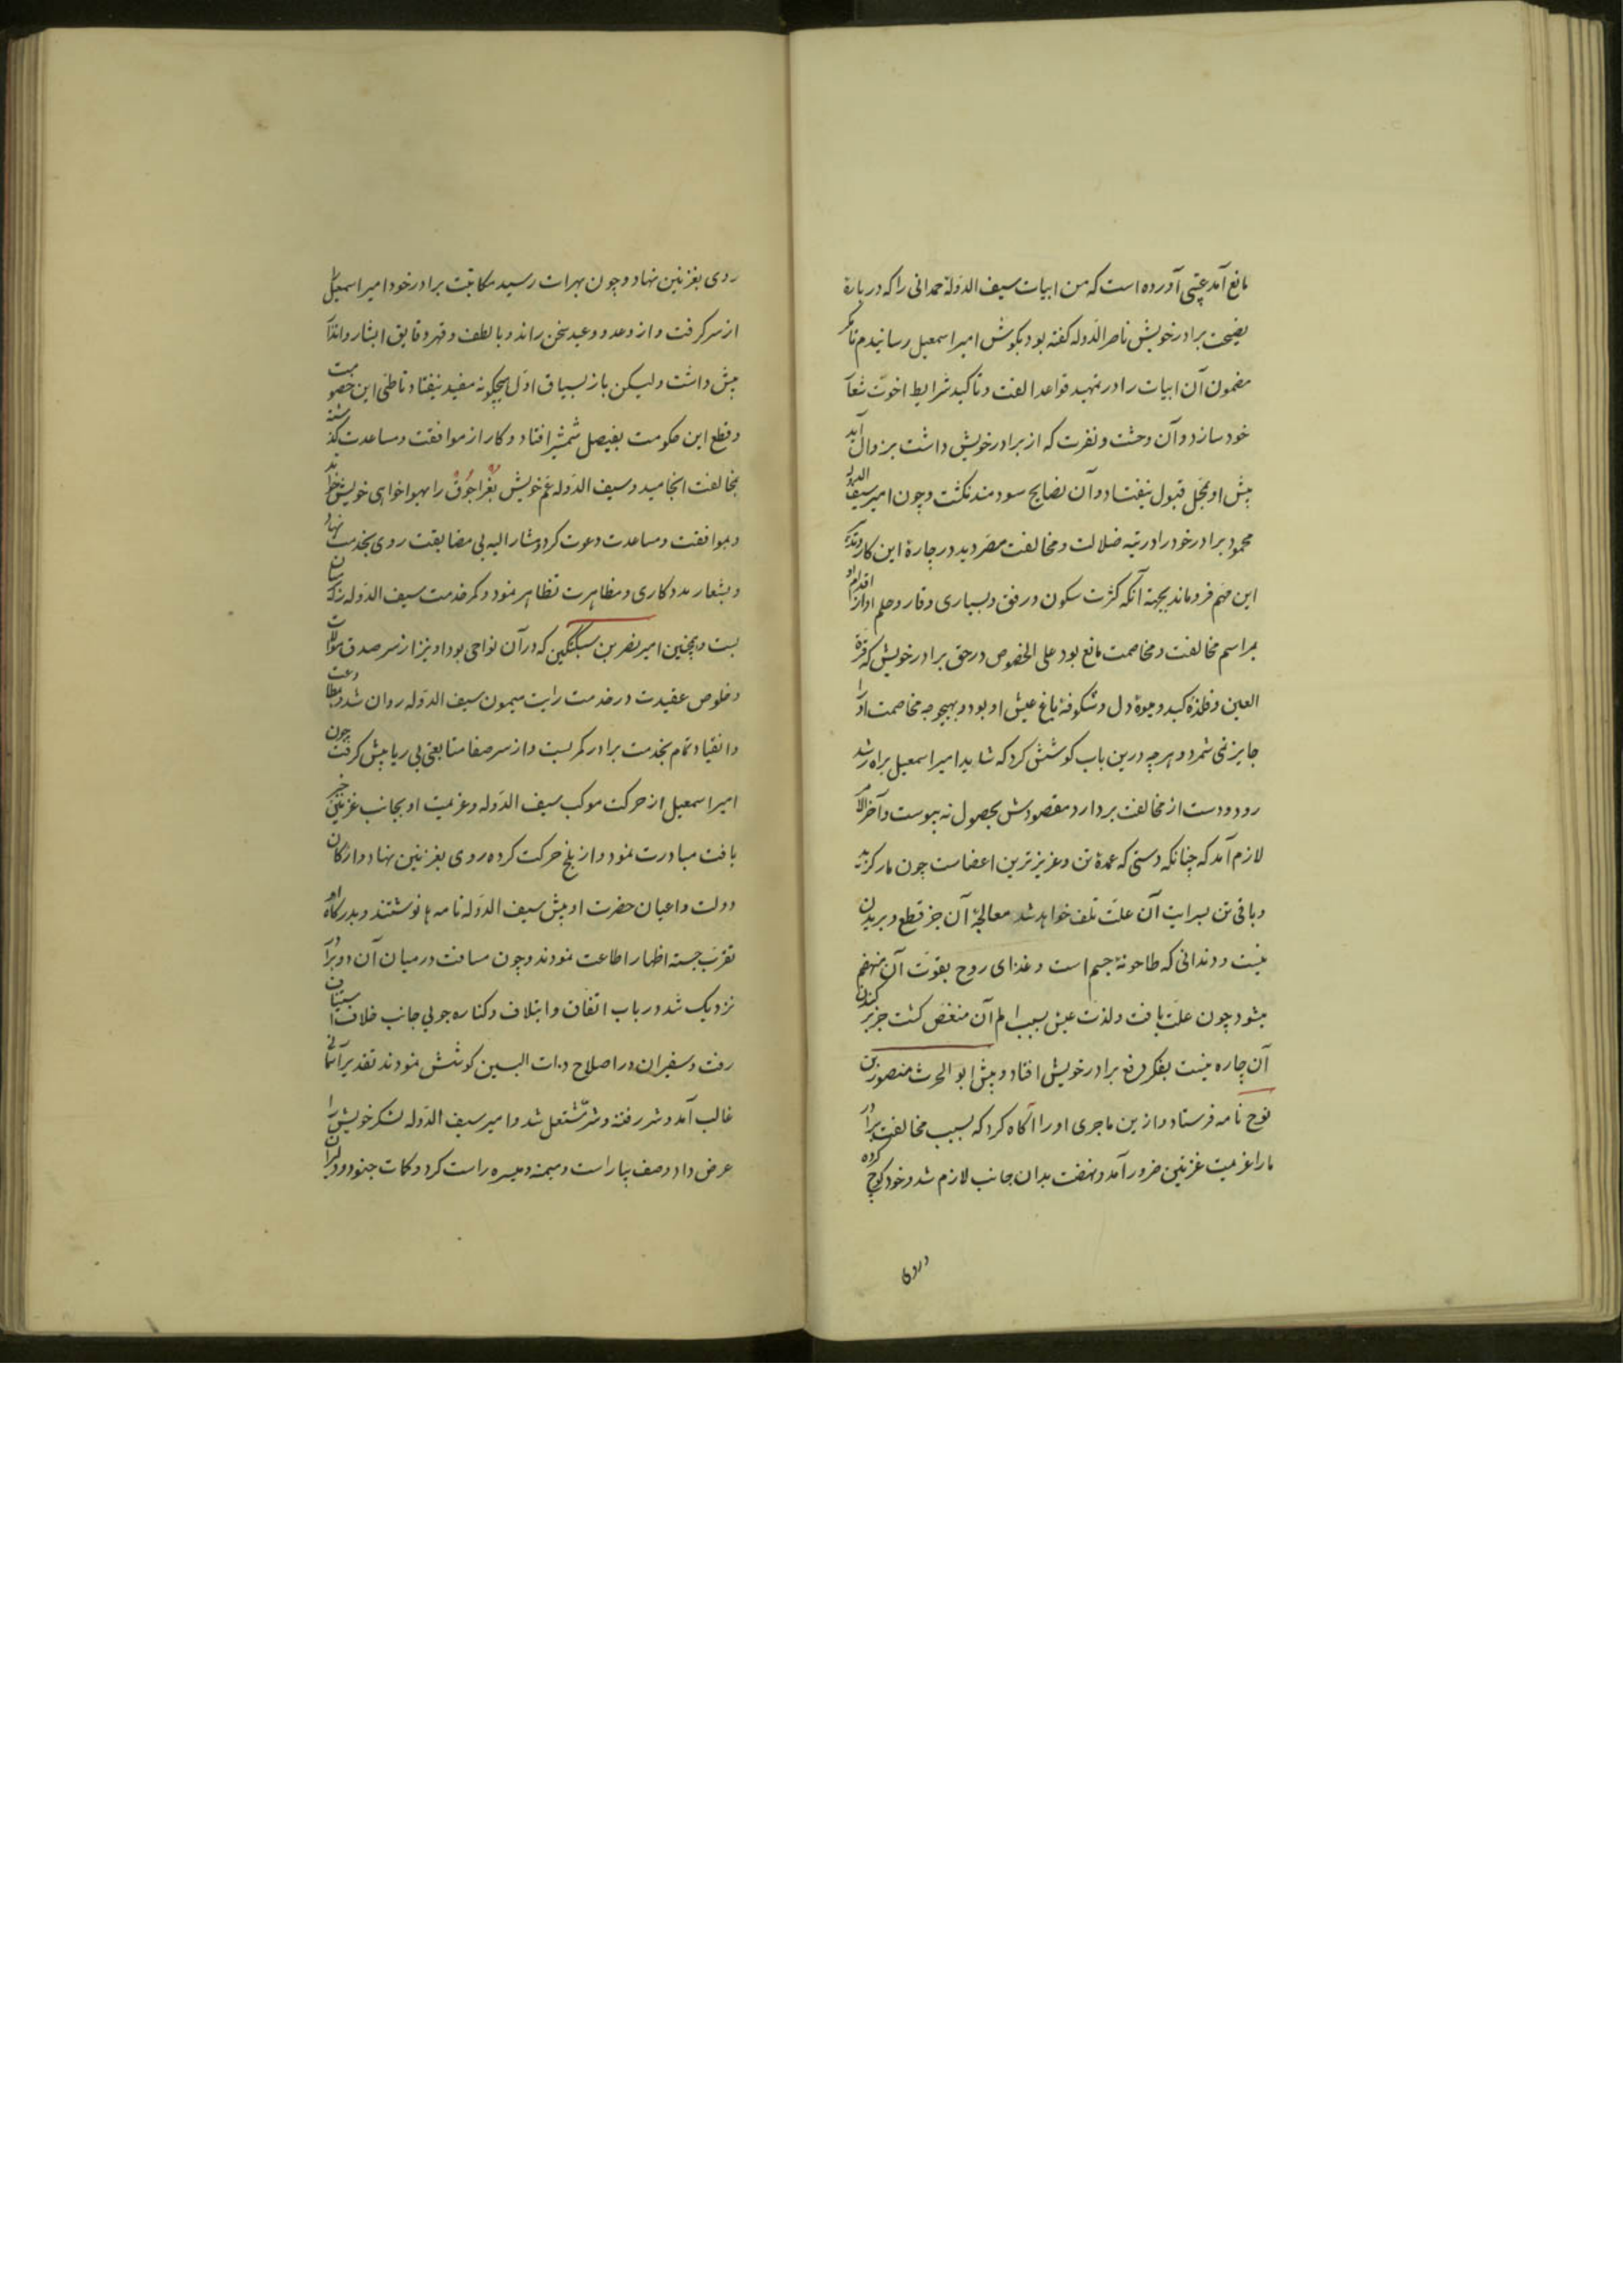 مانع آمد عتبی آورده است که من ابیات سیف الدوله حمدانی را که در باره
نصیحت برادر خویش ناصر الدوله گفته بود بگوش امیر اسمعیل رسانیدم تا مگر
مضمون آن ابیات را در تمهید قواعد الفت و تاکید شرایط اخوت شعار
خود سازد و آن وحشت و نفرت که از برادر خویش داشت بزوال آید
پیش او بمحل قبول نیفتاد و آن نصایح سودمند نگشت و چون امیر سیف الدوله
محمود برادر خود را در تیه ضلالت و مخالفت مصر دید در چاره این کار و تدارک
این مهم فروماند بجهة آنکه کثرت سکون و رفق و بسیاری وقار و حلم او از اقدام او
بمراسم مخالفت و مخاصمت مانع بود علی الخصوص در حق برادر خویش که قرة
العین و فلذه کبد و میوه دل و شکوفه باغ عیش او بود و بهیچوجه مخاصمت او را
جایز نمی شمرد و هر چه درین باب کوشش کرد که شاید امیر اسمعیل براه رشد
رود و دست از مخالفت بردارد مقصودش بحصول نه پیوست و آخر الامر
لازم آمد که چنانکه دستی که عمده تن و عزیزترین اعضاست چون مار گزید
و باقی تن بسرایت آن علت تلف خواهد شد معالجه آن جز قطع و بریدن
نیست و دندانی که طاحونه جسم است و غذای روح بقوت آن منهضم
میشود چون علت یافت و لذت عیش بسبب الم آن منغص گشت جز بر کندن
آن چاره نیست بفکر دفع برادر خویش افتاد و پیش ابو الحرث منصور بن
نوح نامه فرستاد و ازین ماجری او را آگاه کرد که بسبب مخالفت برادر
ما را عزیمت غزنین ضرور آمد و نهضت بدان جانب لازم شد و خود کوچ کرده
روی بغزنین نهاد و چون بهرات رسید مکاتبت برادر خود امیر اسمعیل را
از سر گرفت و از وعد و وعید سخن راند و با لطف و قهر دقایق ابشار و انذار
پیش داشت ولیکن باز بسیاق اول هیچگونه مفید نیفتاد تا طی این خصومت
و قطع این حکومت بفیصل شمشیر افتاد و کار از موافقت و مساعدت گذشته
بمخالفت انجامید و سیف الدوله عم خویش بغراجوق را بهواخواهی خویش خواند
و بموافقت و مساعدت دعوت کرد و مشار الیه بی مضایقت روی بخدمت نهاد
و بشعار مددکاری و مظاهرت تظاهر نمود و کمر خدمت سیف الدوله بر میان
بست و همچنین امیر نصر بن سبکتکین که در آن نواحی بود او نیز از سر صدق موالات
و خلوص عقیدت در خدمت رایت میمون سیف الدوله روان شد و بمطاوعت
و انقیاد تمام بخدمت برادر کمر بست و از سر صفا متابعتی بی ریا پیش گرفت چون
امیر اسمعیل از حرکت موکب سیف الدوله و عزیمت او بجانب غزنین خبر
یافت مبادرت نمود و از بلخ حرکت کرده روی بغزنین نهاد و ارکان
دولت و اعیان حضرت او پیش سیف الدوله نامه ها نوشتند و بدرگاه او
تقرب جسته اظهار اطاعت نمودند و چون مسافت در میان آن دو برادر
نزدیک شد در باب اتفاق و ایتلاف و کناره جویی جانب خلاف سخنان
رفت و سفیران در اصلاح ذات البین کوشش نمودند تقدیر آسمانی
غالب آمد و شرر فتنه و شر مشتعل شد و امیر سیف الدوله لشکر خویش را
عرض داد و صف بیاراست و میمنه و میسره راست کرد و کمات جنود و دلیران